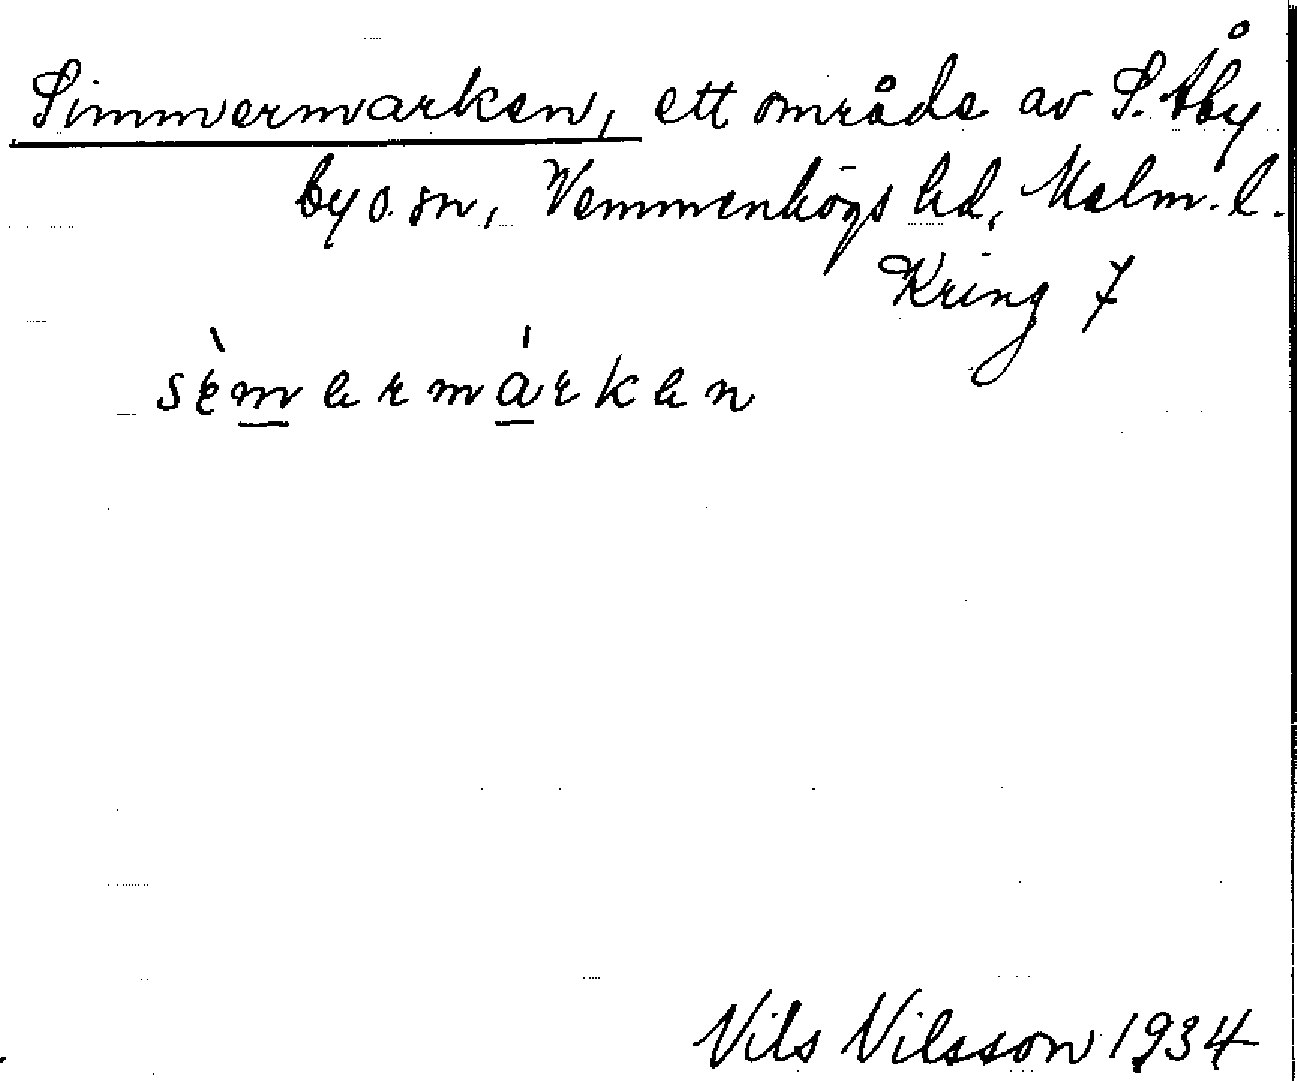 Simmermarken, ett område av S. Åby
by o. sn, Vemmenhögs hd, Malm. l.
Kring 7
sèmermárken
Nils Nilsson 1934